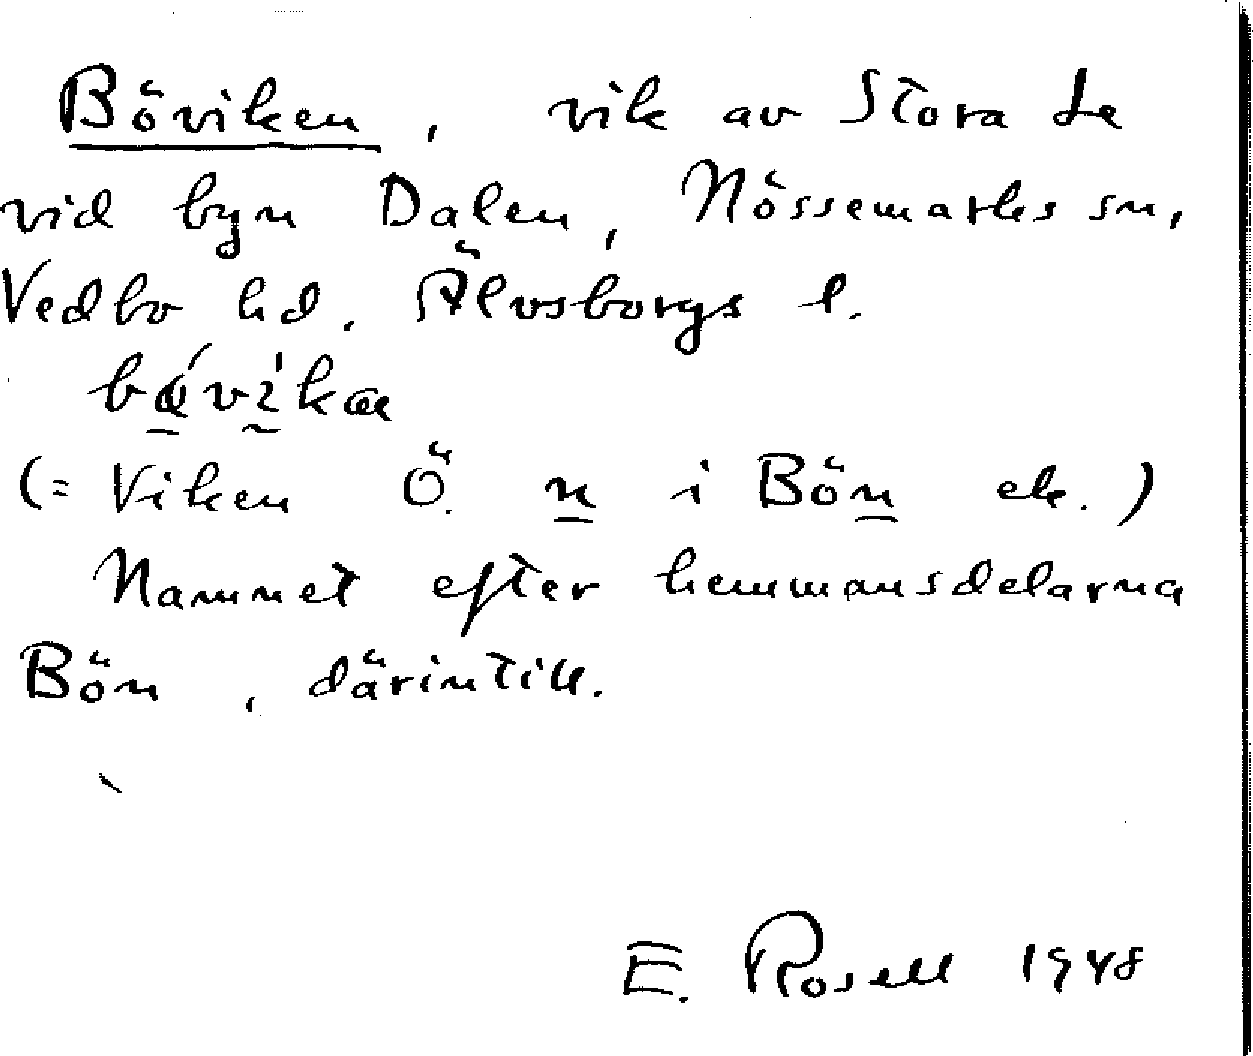 Böviken, vik av Stora Le
vid byn Dalen, Nössemarks sn,
Vedbo hd. Älvsborgs l.
(= Viken Ö. n i Bön ek.)
Namnet efter hemmansdelarna
Bön, därintill.
E. Rosell 1948